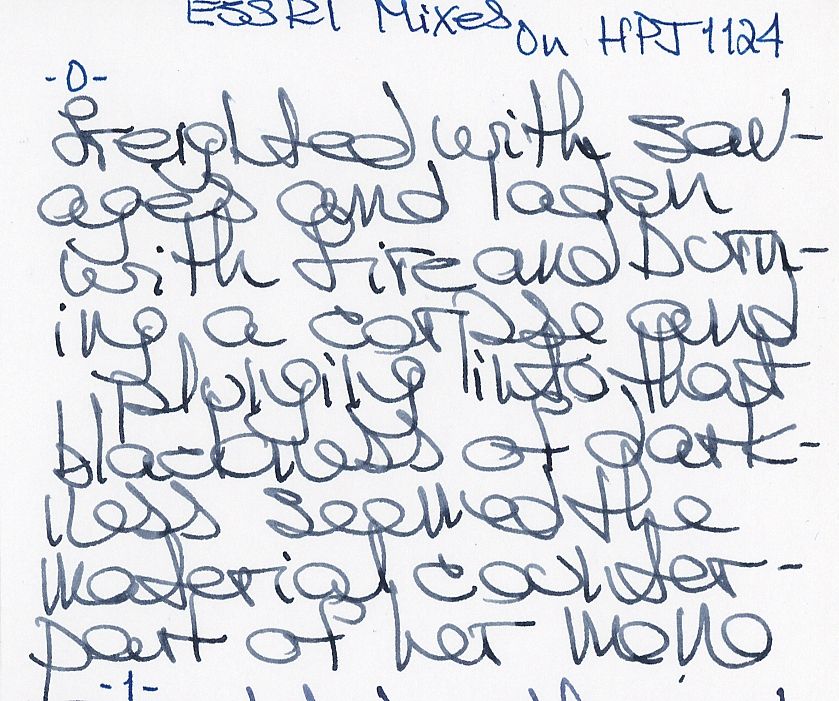 ESSRI Mixes
On HPJ1124
-0-
freighted with sav-
ages and laden
with fire and burn-
ing a corpse and
plunging into that
blackness of dark-
ness seemed the
material counter-
part of her mono
-1-